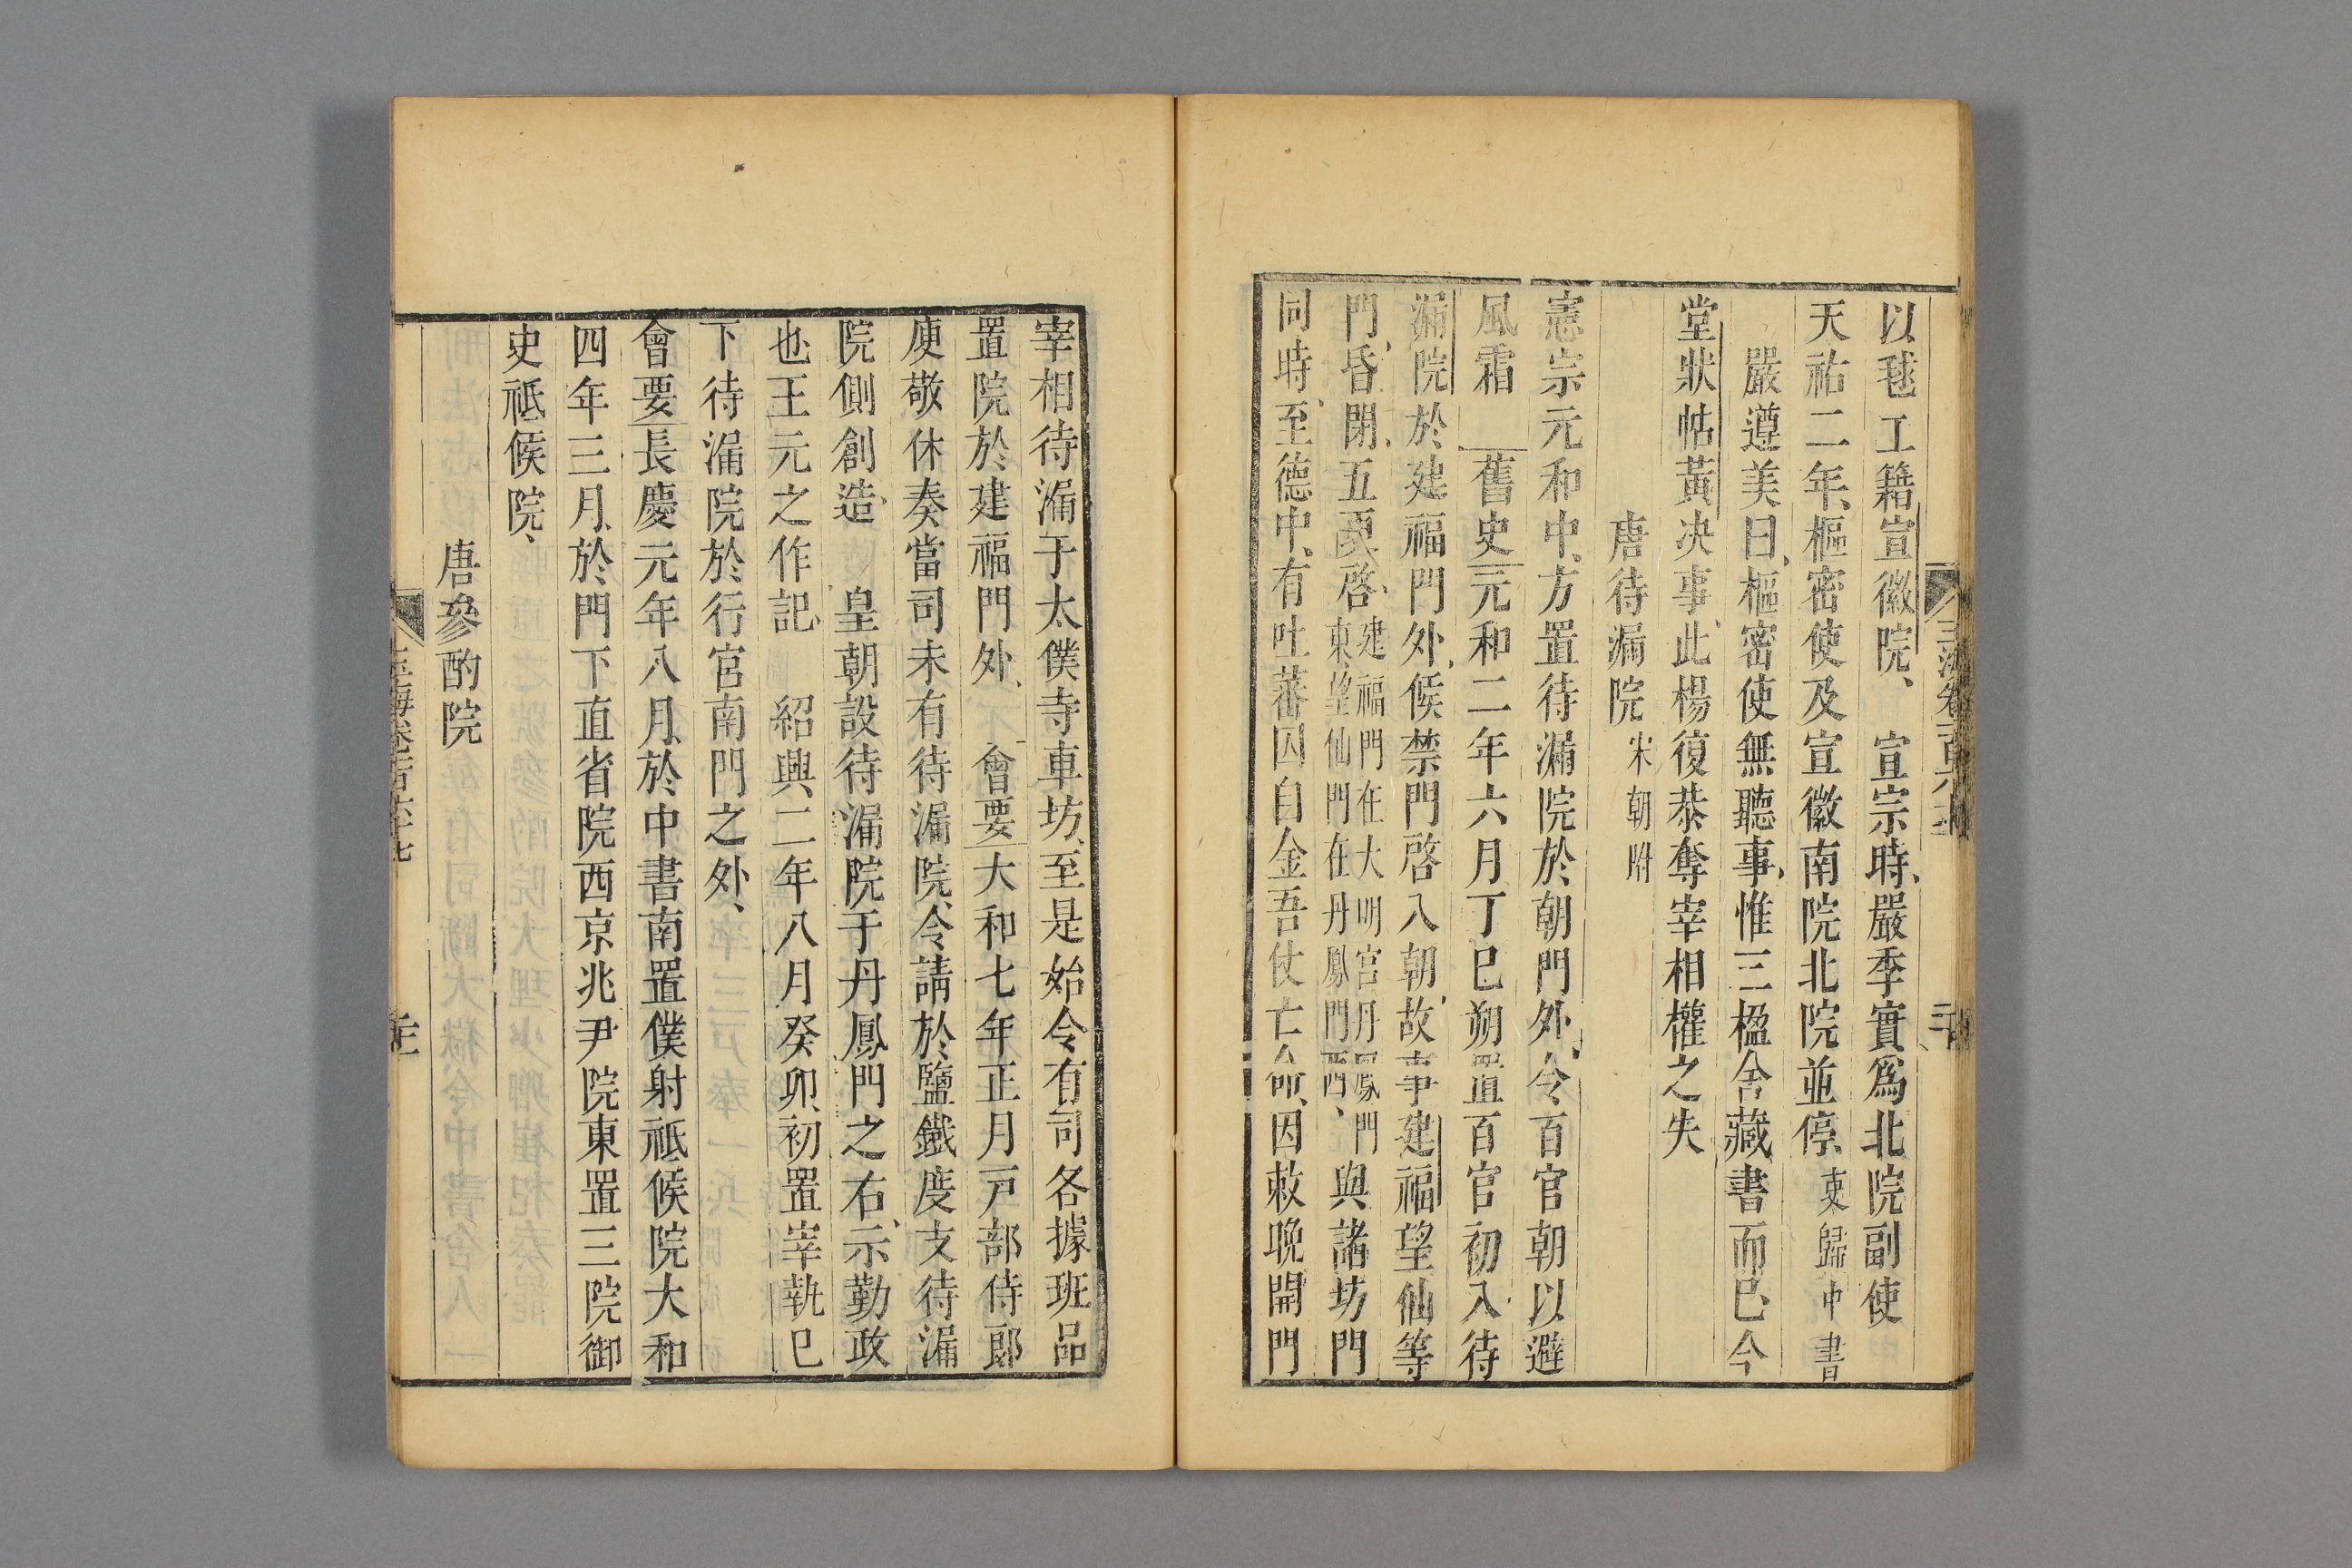 以毬工籍宣徽院、宣宗時、嚴季實爲北院副使
天祐二年、樞密使及宣徽南院北院並停、吏歸中書
嚴遵美曰、樞密使無聽事、惟三楹舍藏書而已、今
堂狀帖黃决事、此楊復恭奪宰相權之失
唐待漏院 宋朝附
憲宗元和中、方置待漏院於朝門外、令百官朝以避
風霜 舊史元和二年六月丁巳朔置百官初入待
漏院於建福門外、候禁門啓入朝、故事建福望仙等
門、昏閉、五更啓、建福門在大明宮丹鳳門東、望仙門在丹鳳門西、與諸坊門
同時、至德中、有吐蕃囚自金吾仗亡命、因敕晚開門
宰相待漏于太僕寺車坊、至是始令有司各據班品
置院於建福門外、會要大和七年正月戸部侍郎
庾敬休奏當司未有待漏院、令請於鹽鐵度支待漏
院側創造、皇朝設待漏院于丹鳳門之右、示勤政
也、王元之作記、紹興二年八月癸卯、初置宰執巳
下待漏院於行宮南門之外、
會要長慶元年八月、於中書南置僕射祗候院大和
四年三月、於門下直省院西京兆尹院東置三院御
史祗候院、
唐參酌院
玉海卷一百六十七